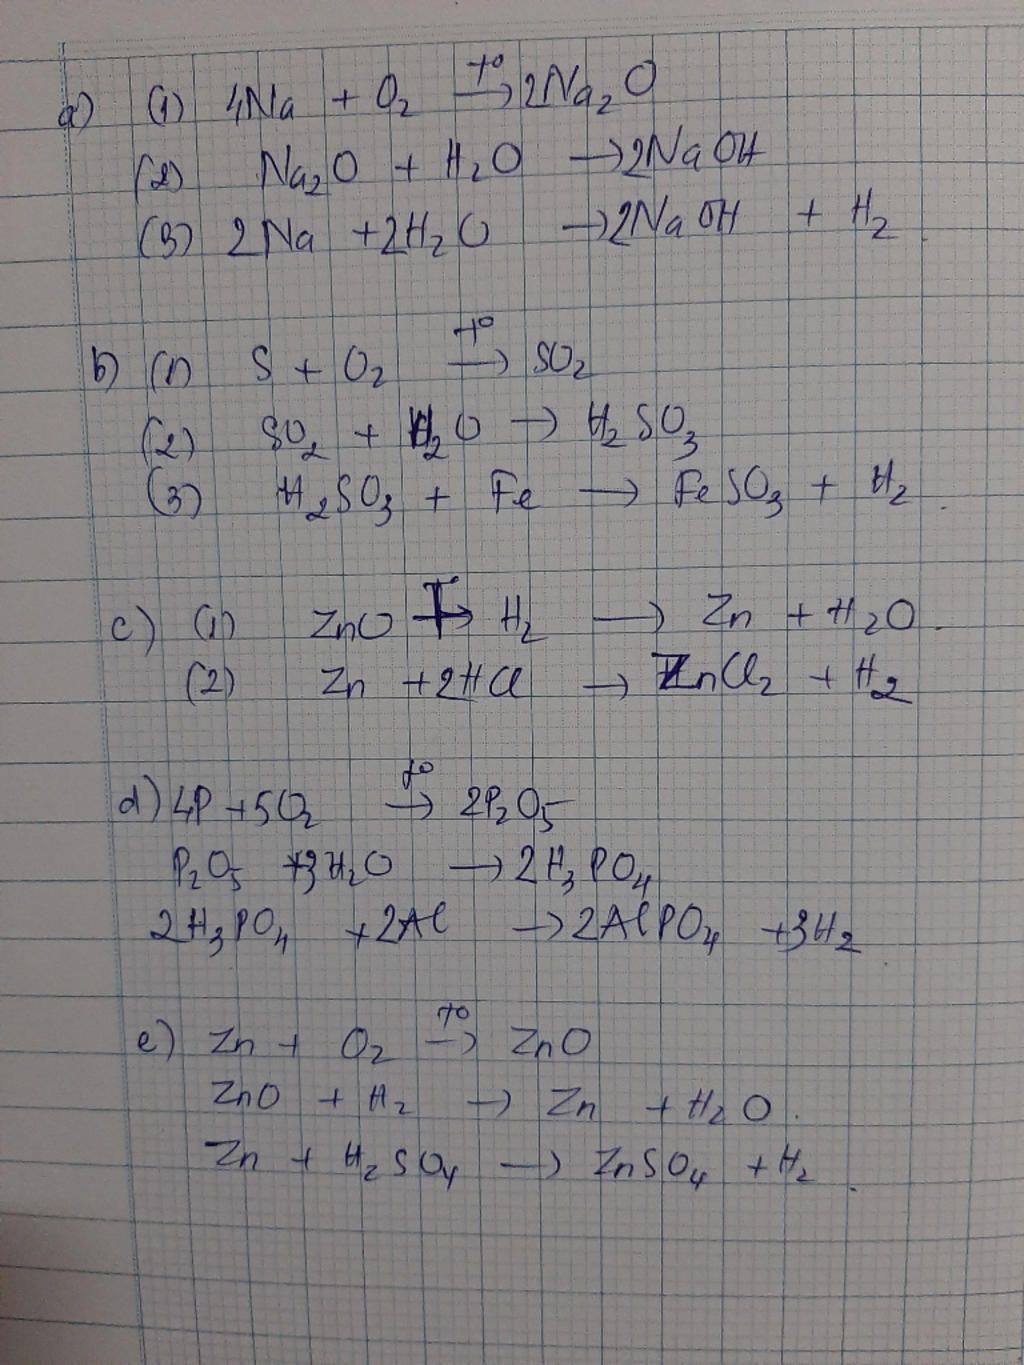 a) (1) 4Na + O₂ →(t°) 2Na₂O
(2) Na₂O + H₂O → 2NaOH
(3) 2Na + 2H₂O → 2NaOH + H₂.
b) (1) S + O₂ →(t°) SO₂
(2) SO₂ + H₂O → H₂SO₃
(3) H₂SO₃ + Fe → FeSO₃ + H₂.
c) (1) ZnO + H₂ → Zn + H₂O.
(2) Zn + 2HCl → ZnCl₂ + H₂
d) 4P + 5O₂ →(t°) 2P₂O₅
P₂O₅ + 3H₂O → 2H₃PO₄
2H₃PO₄ + 2Al → 2AlPO₄ + 3H₂
e) Zn + O₂ →(t°) ZnO
ZnO + H₂ → Zn + H₂O.
Zn + H₂SO₄ → ZnSO₄ + H₂.